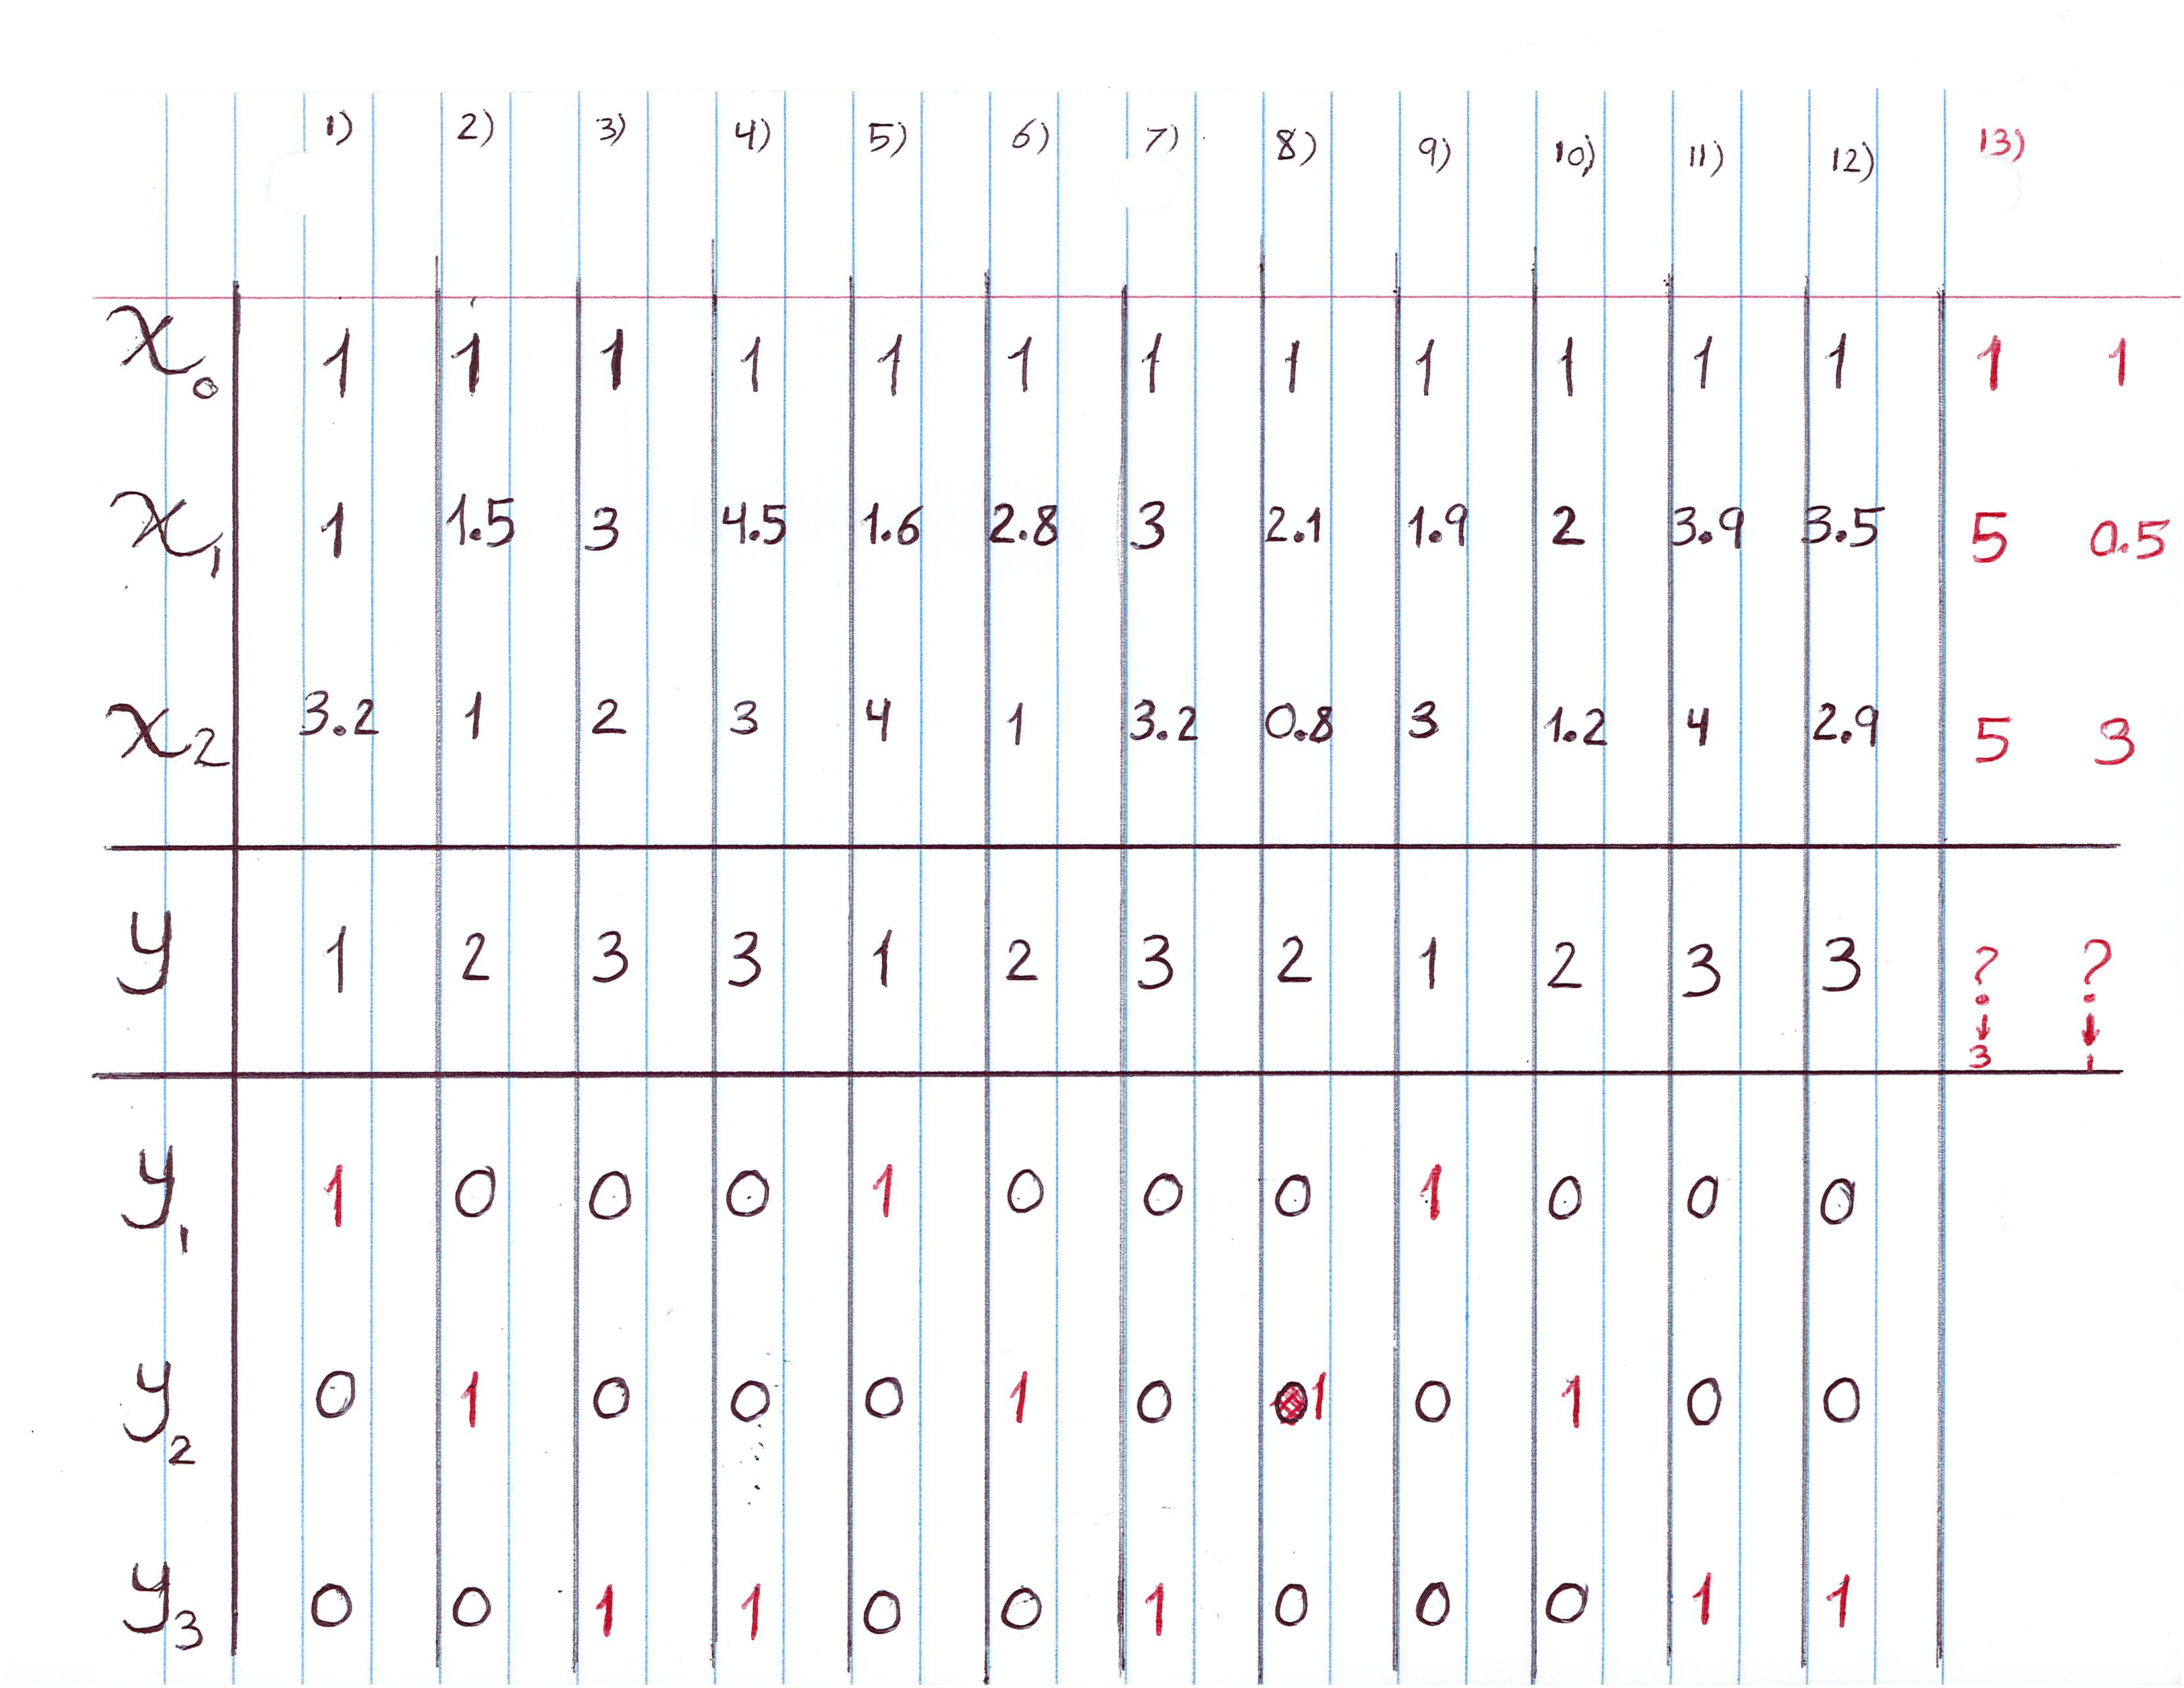 1) 2) 3) 4) 5) 6) 7) 8) 9) 10) 11) 12) 13)
x₀ 1 1 1 1 1 1 1 1 1 1 1 1 1 1
x₁ 1 1.5 3 4.5 1.6 2.8 3 2.1 1.9 2 3.9 3.5 5 0.5
x₂ 3.2 1 2 3 4 1 3.2 0.8 3 1.2 4 2.9 5 3
y 1 2 3 3 1 2 3 2 1 2 3 3 ? ?
↓ ↓
3 1
y₁ 1 0 0 0 1 0 0 0 1 0 0 0
y₂ 0 1 0 0 0 1 0 1 0 1 0 0
y₃ 0 0 1 1 0 0 1 0 0 0 1 1